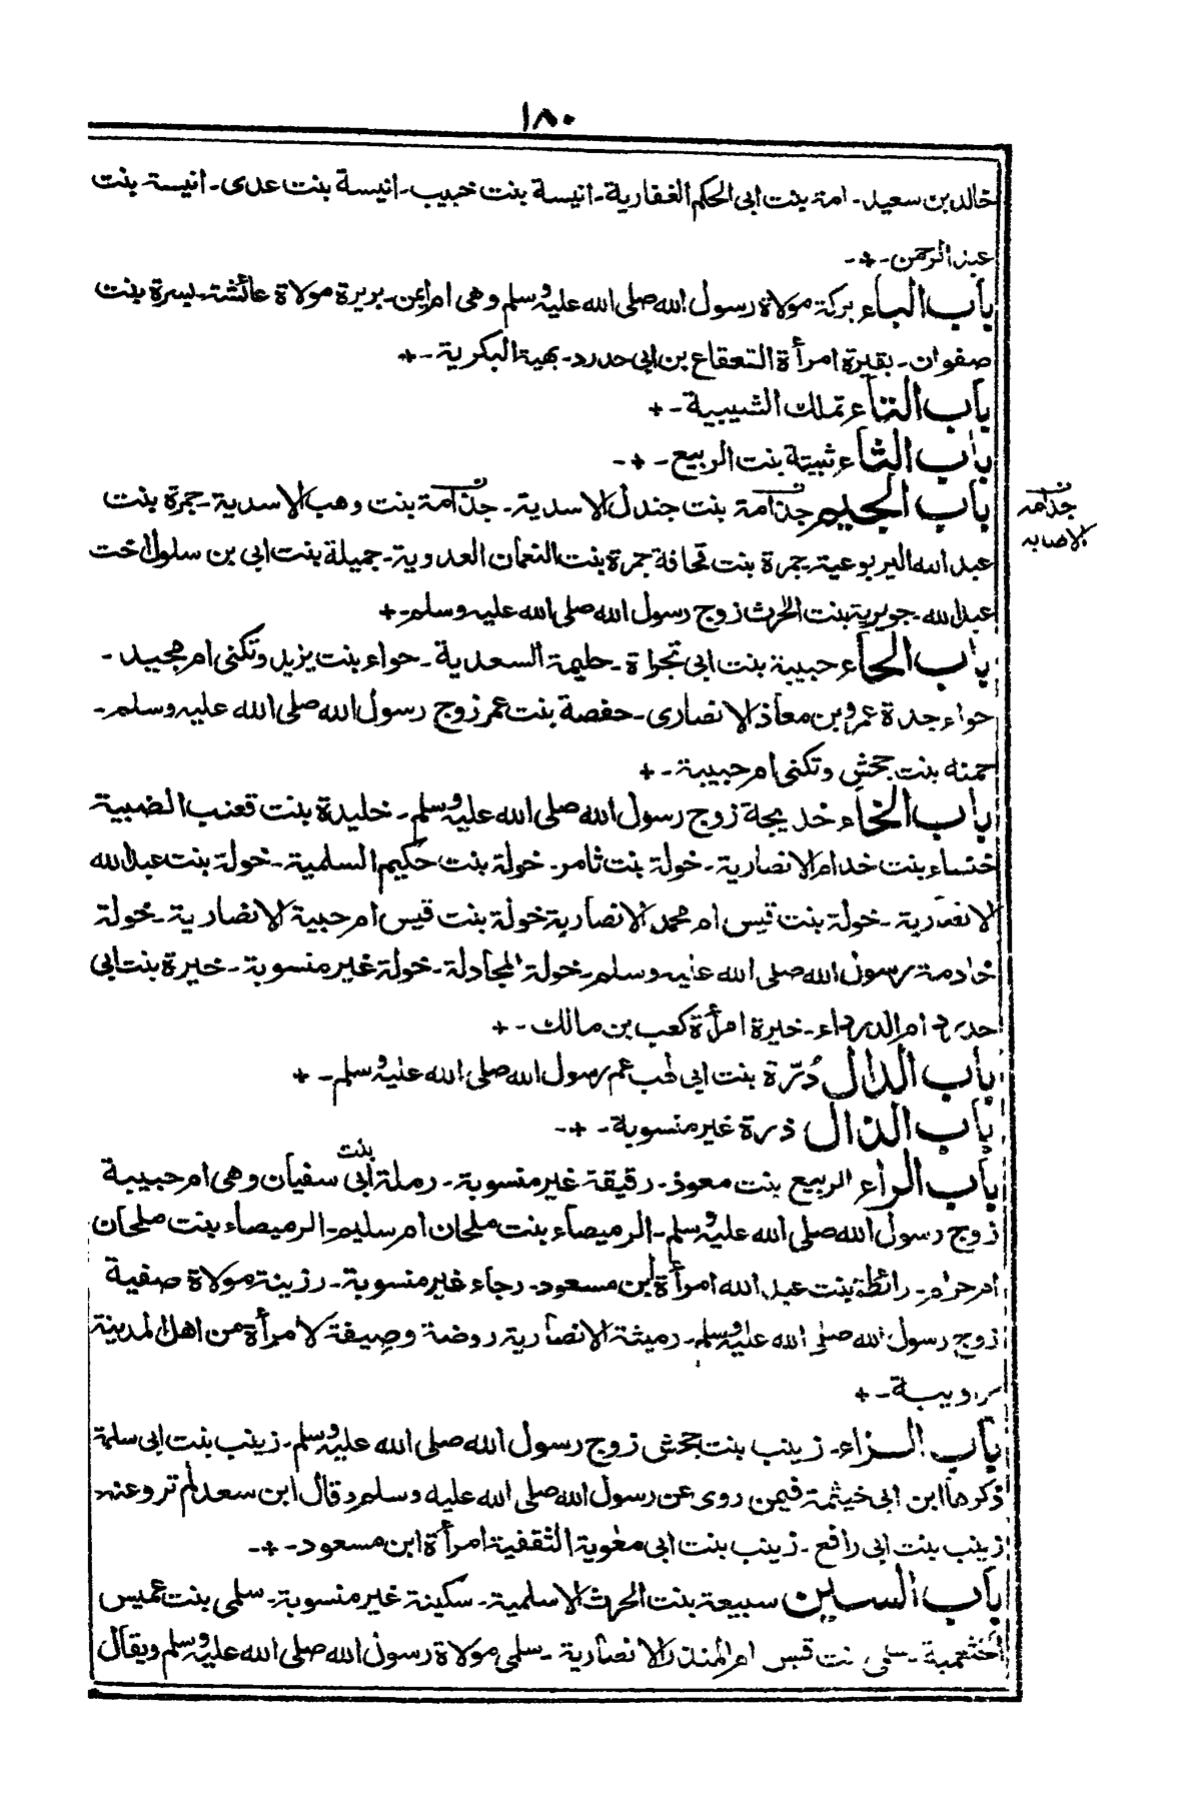 ١٨٠
خالد بن سعيد ـ امة بنت ابى الحكم الغفارية ـ انيسة بنت خبيب ـ انيسة بنت عدى ـ انيسة بنت
عبد الرحمن ـ + ـ
باب الباء بركة مولاة رسول الله صلى الله عليه وسلم وهى ام ايمن ـ بريرة مولاة عائشة ـ بسرة بنت
صفوان ـ بقيرة امرأة القعقاع بن ابى حدرد ـ بهية البكرية ـ +
باب التاء تملك الشيبية ـ +
باب الثاء ثبيتة بنت الربيع ـ + ـ
باب الجيم جذامة بنت جندل الاسدية ـ جذامة بنت وهب الاسدية ـ جمرة بنت
جذامه
الاصابه
عبد الله اليربوعية ـ جمرة بنت قحافة جمرة بنت النعمان العدوية ـ جميلة بنت ابى بن سلول اخت
عبد الله ـ جويرية بنت الحرث زوج رسول الله صلى الله عليه وسلم ـ +
باب الحاء حبيبة بنت ابى تجراة ـ حليمة السعدية ـ حواء بنت يزيد وتكنى ام بجيد ـ
حواء جدة عمرو بن معاذ الانصارى ـ حفصة بنت عمر زوج رسول الله صلى الله عليه وسلم ـ
حمنه بنت جحش وتكنى ام حبيبة ـ +
باب الخاء خديجة زوج رسول الله صلى الله عليه وسلم ـ خليدة بنت قعنب الضبية
خنساء بنت خدام الانصارية ـ خولة بنت ثامر ـ خولة بنت حكيم السلمية ـ خولة بنت عبد الله
الانصارية ـ خولة بنت قيس ام محمد الانصارية خولة بنت قيس ام حبية الانصارية ـ خولة
خادمة رسول الله صلى الله عليه وسلم ـ خولة المجادلة ـ خولة غير منسوبة ـ خيرة بنت ابى
حدرد ام الدرداء ـ خيرة امرأة كعب بن مالك ـ +
باب الدال دُرّة بنت ابى لهب عم رسول الله صلى الله عليه وسلم ـ +
باب الذال ذرة غير منسوبة ـ + ـ
باب الراء الربيع بنت معوذ ـ رقيقة غير منسوبة ـ رملة بنت ابى سفيان وهى ام حبيبة
زوج رسول الله صلى الله عليه وسلم ـ الرميصاء بنت ملحان ام سليم ـ الرميصاء بنت ملحان
ام حرام ـ رائطة بنت عبد الله امرأة ابن مسعود ـ رجاء غير منسوبة ـ رزينة مولاة صفية
زوج رسول الله صلى الله عليه وسلم ـ رميثة الانصارية روضة وصيفة لامرأة من اهل المدينة
ربيبة ـ +
باب الزاء ـ زينب بنت جحش زوج رسول الله صلى الله عليه وسلم ـ زينب بنت ابى سلمة
ذكرها ابن ابى خيثمة فيمن روى عن رسول الله صلى الله عليه وسلم وقال ابن سعد لم ترو عنه
زينب بنت ابى رافع ـ زينب بنت ابى معٰوية الثقفية امرأة ابن مسعود ـ + ـ
باب السين سبيعة بنت الحرث الاسلمية ـ سكينة غير منسوبة ـ سلمى بنت عميس
الخثعمية ـ سلمى بنت قيس ام المنذر الانصارية ـ سلمى مولاة رسول الله صلى الله عليه وسلم ويقال